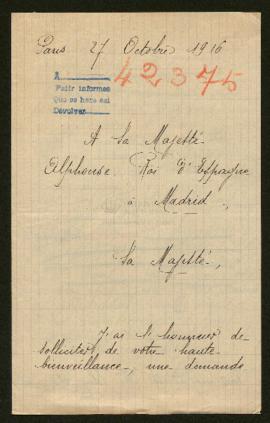 Paris 27 Octobre 1916
42375
A
Pedir informes
Que se hace así
Devolver
A Sa Majesté
Alphonse Roi d'Espagne
à Madrid,
Sa Majesté,
J'ai l'honneur de
solliciter de votre haute
bienveillance, une demande